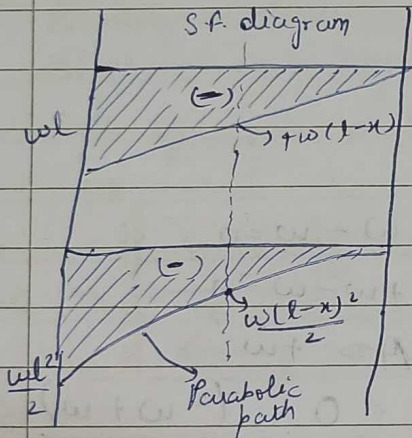 S.F. diagram
(-)
wl
+w(l-x)
(-)
w(l-x)²/2
wl²/2
Parabolic
path